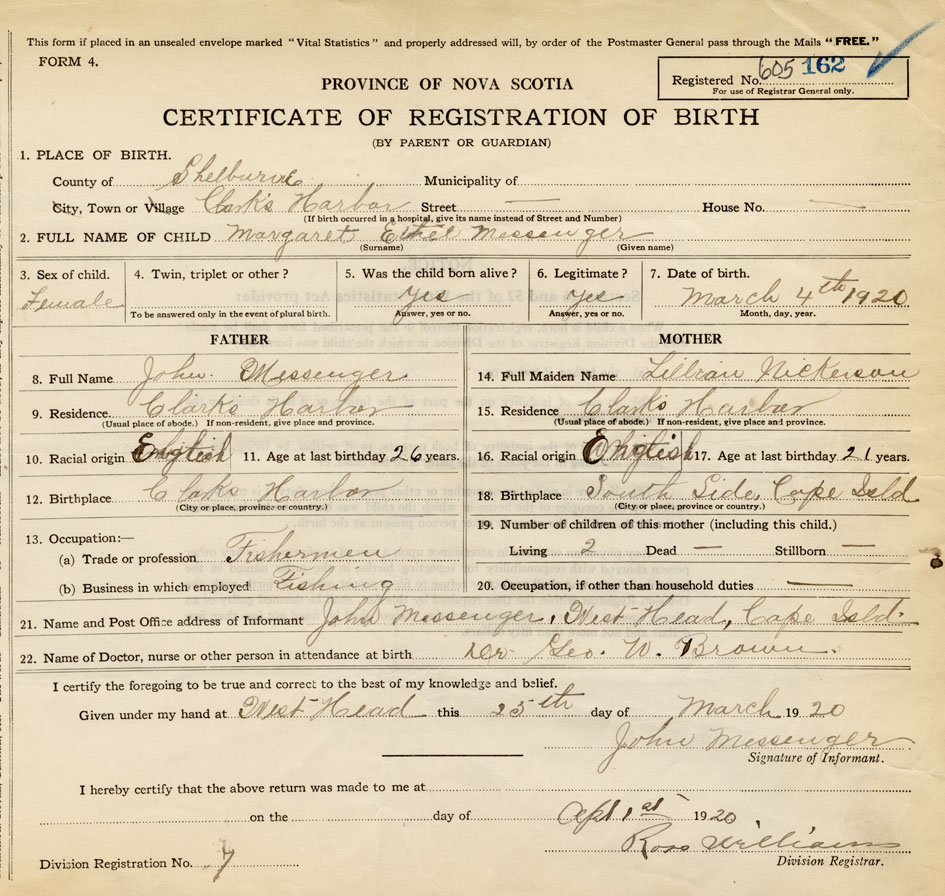 This form if placed in an unsealed envelope marked "Vital Statistics" and properly addressed will, by order of the Postmaster General pass through the Mails "FREE."
FORM 4.
Registered No. 605 162
For use of Registrar General only.
PROVINCE OF NOVA SCOTIA
CERTIFICATE OF REGISTRATION OF BIRTH
(BY PARENT OR GUARDIAN)
1. PLACE OF BIRTH.
County of Shelburne Municipality of
City, Town or Village Clark's Harbor Street — House No. —
(If birth occurred in a hospital, give its name instead of Street and Number)
2. FULL NAME OF CHILD Margaret Ethel Messenger
(Surname) (Given name)
3. Sex of child. 4. Twin, triplet or other? 5. Was the child born alive? 6. Legitimate? 7. Date of birth.
Female Yes Yes March 4th 1920
To be answered only in the event of plural birth. Answer, yes or no. Answer, yes or no. Month, day, year.
FATHER MOTHER
8. Full Name John Messenger 14. Full Maiden Name Lillian Nickerson
9. Residence Clark's Harbor 15. Residence Clarks Harbor
(Usual place of abode.) If non-resident, give place and province. (Usual place of abode.) If non-resident, give place and province.
10. Racial origin English 11. Age at last birthday 26 years. 16. Racial origin English 17. Age at last birthday 21 years.
12. Birthplace Clarks Harbor 18. Birthplace South Side, Cape Isld
(City or place, province or country.) (City or place, province or country.)
13. Occupation:— 19. Number of children of this mother (including this child.)
(a) Trade or profession Fishermen Living 2 Dead — Stillborn —
(b) Business in which employed Fishing 20. Occupation, if other than household duties —
21. Name and Post Office address of Informant John Messenger, West Head, Cape Isld.
22. Name of Doctor, nurse or other person in attendance at birth Dr Geo. W. Brown.
I certify the foregoing to be true and correct to the best of my knowledge and belief.
Given under my hand at West Head this 25th day of March 1920
John Messenger
Signature of Informant.
I hereby certify that the above return was made to me at
on the day of Apl 1st 1920
Ross Williams
Division Registration No. 7 Division Registrar.